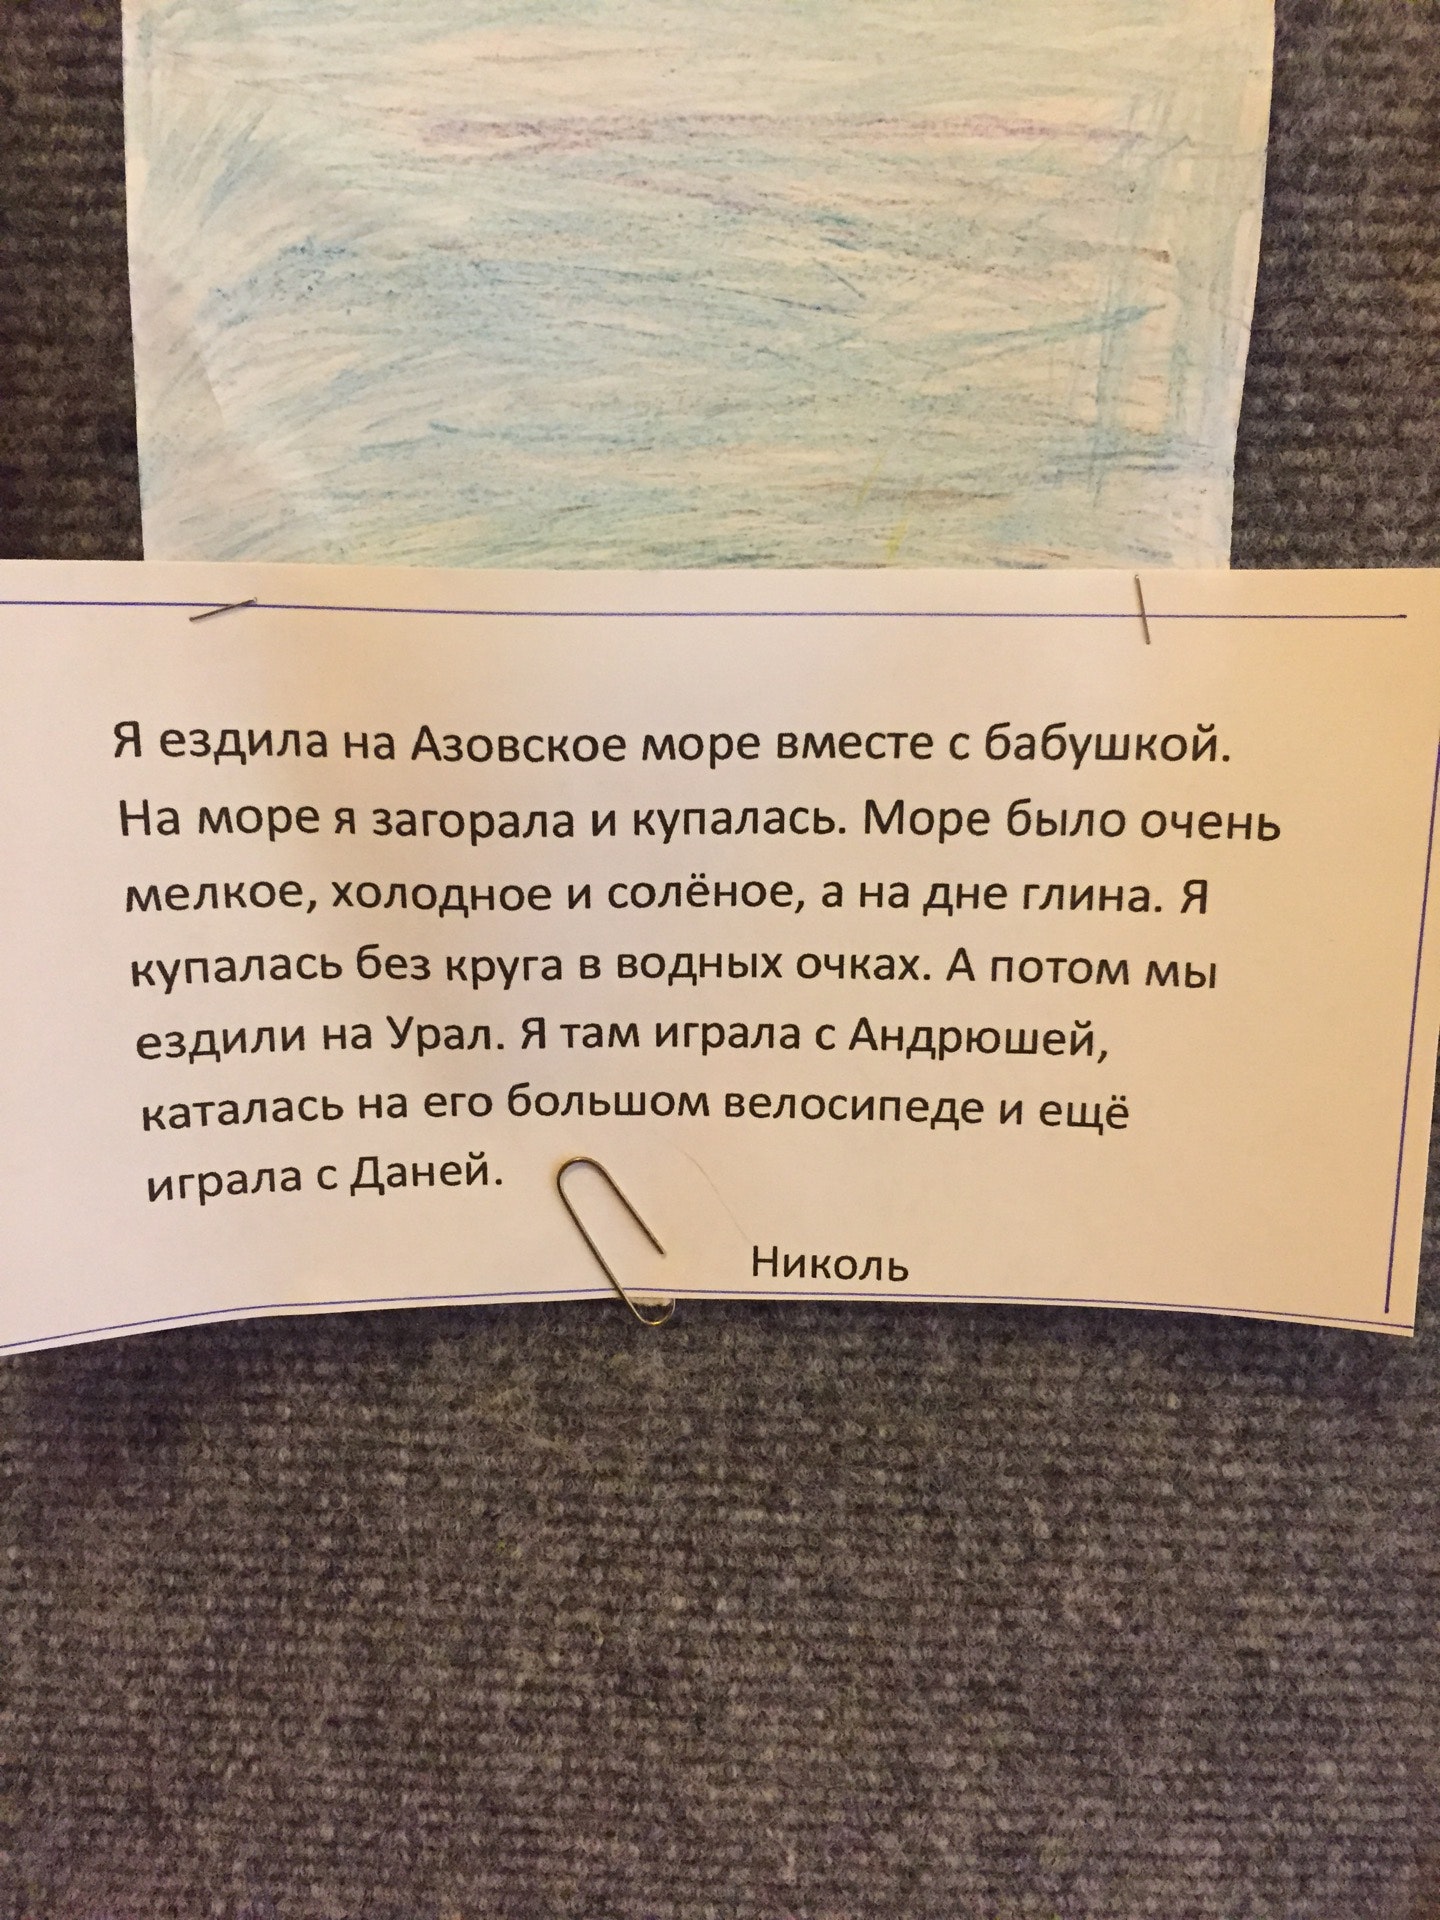 Я ездила на Азовское море вместе с бабушкой.
На море я загорала и купалась. Море было очень
мелкое, холодное и солёное, а на дне глина. Я
купалась без круга в водных очках. А потом мы
ездили на Урал. Я там играла с Андрюшей,
каталась на его большом велосипеде и ещё
играла с Даней.
Николь